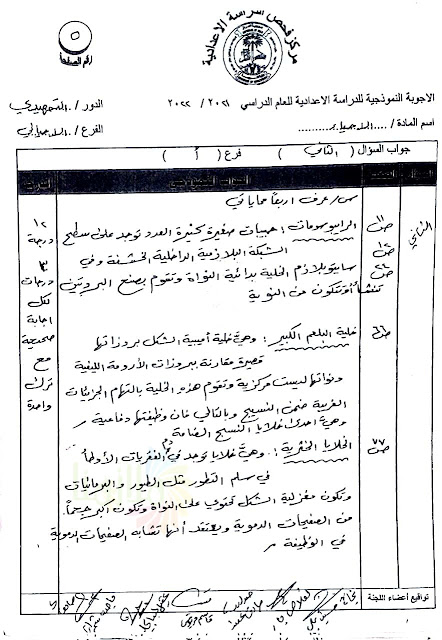 مركز فحص الدراسة الاعدادية
٥
رقم الصفحة
الاجوبة النموذجية للدراسة الاعدادية للعام الدراسي ٢٠٢١ / ٢٠٢٢
الدور / التمهيدي
اسم المادة /
الفرع /
جواب السؤال ( الثاني ) فرع ( أ )
س/ عرف اربعاً مما يأتي
الرايبوسومات : حبيبات صغيرة كثيرة العدد توجد على سطح
الشبكة البلازمية الداخلية الخشنة وفي
سايتوبلازم الخلية بدائية النواة وتقوم بصنع البروتين
تنشأ من النوية
خلية البلعم الكبير : وهي خلية أميبية الشكل بروزاتها
قصيرة مقارنة ببروزات الأرومة الليفية
ونواتها ليست مركزية وتقوم هذه الخلية بالتهام الجزيئات
الغريبة ضمن النسيج وبالتالي فان وظيفتها دفاعية
وهي احدى خلايا النسيج الضامة
الخلايا الخثرية : وهي خلايا توجد في دم الفقريات الأوطأ
في سلم التطور مثل الطيور والبرمائيات
وتكون مغزلية الشكل تحتوي على النواة وتكون اكبر حجماً
من الصفيحات الدموية ويعتقد أنها تشابه الصفيحات الدموية
في الوظيفة
الثاني
ص ١١
ص ٦٦
ص ٧٧
١٢
درجة
٣
درجات
لكل
اجابة
صحيحة
مع
ترك
واحدة
تواقيع أعضاء اللجنة